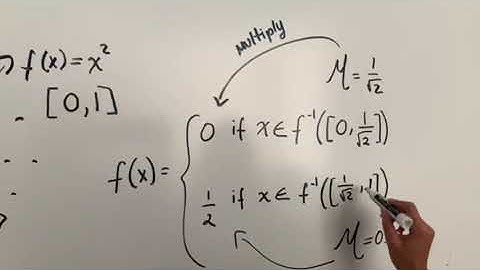 f(x) = x²
[0,1]
multiply
M = 1/√2
f(x) = { 0 if x ∈ f⁻¹([0, 1/√2])
1/2 if x ∈ f⁻¹([1/√2, 1])
M = 0.